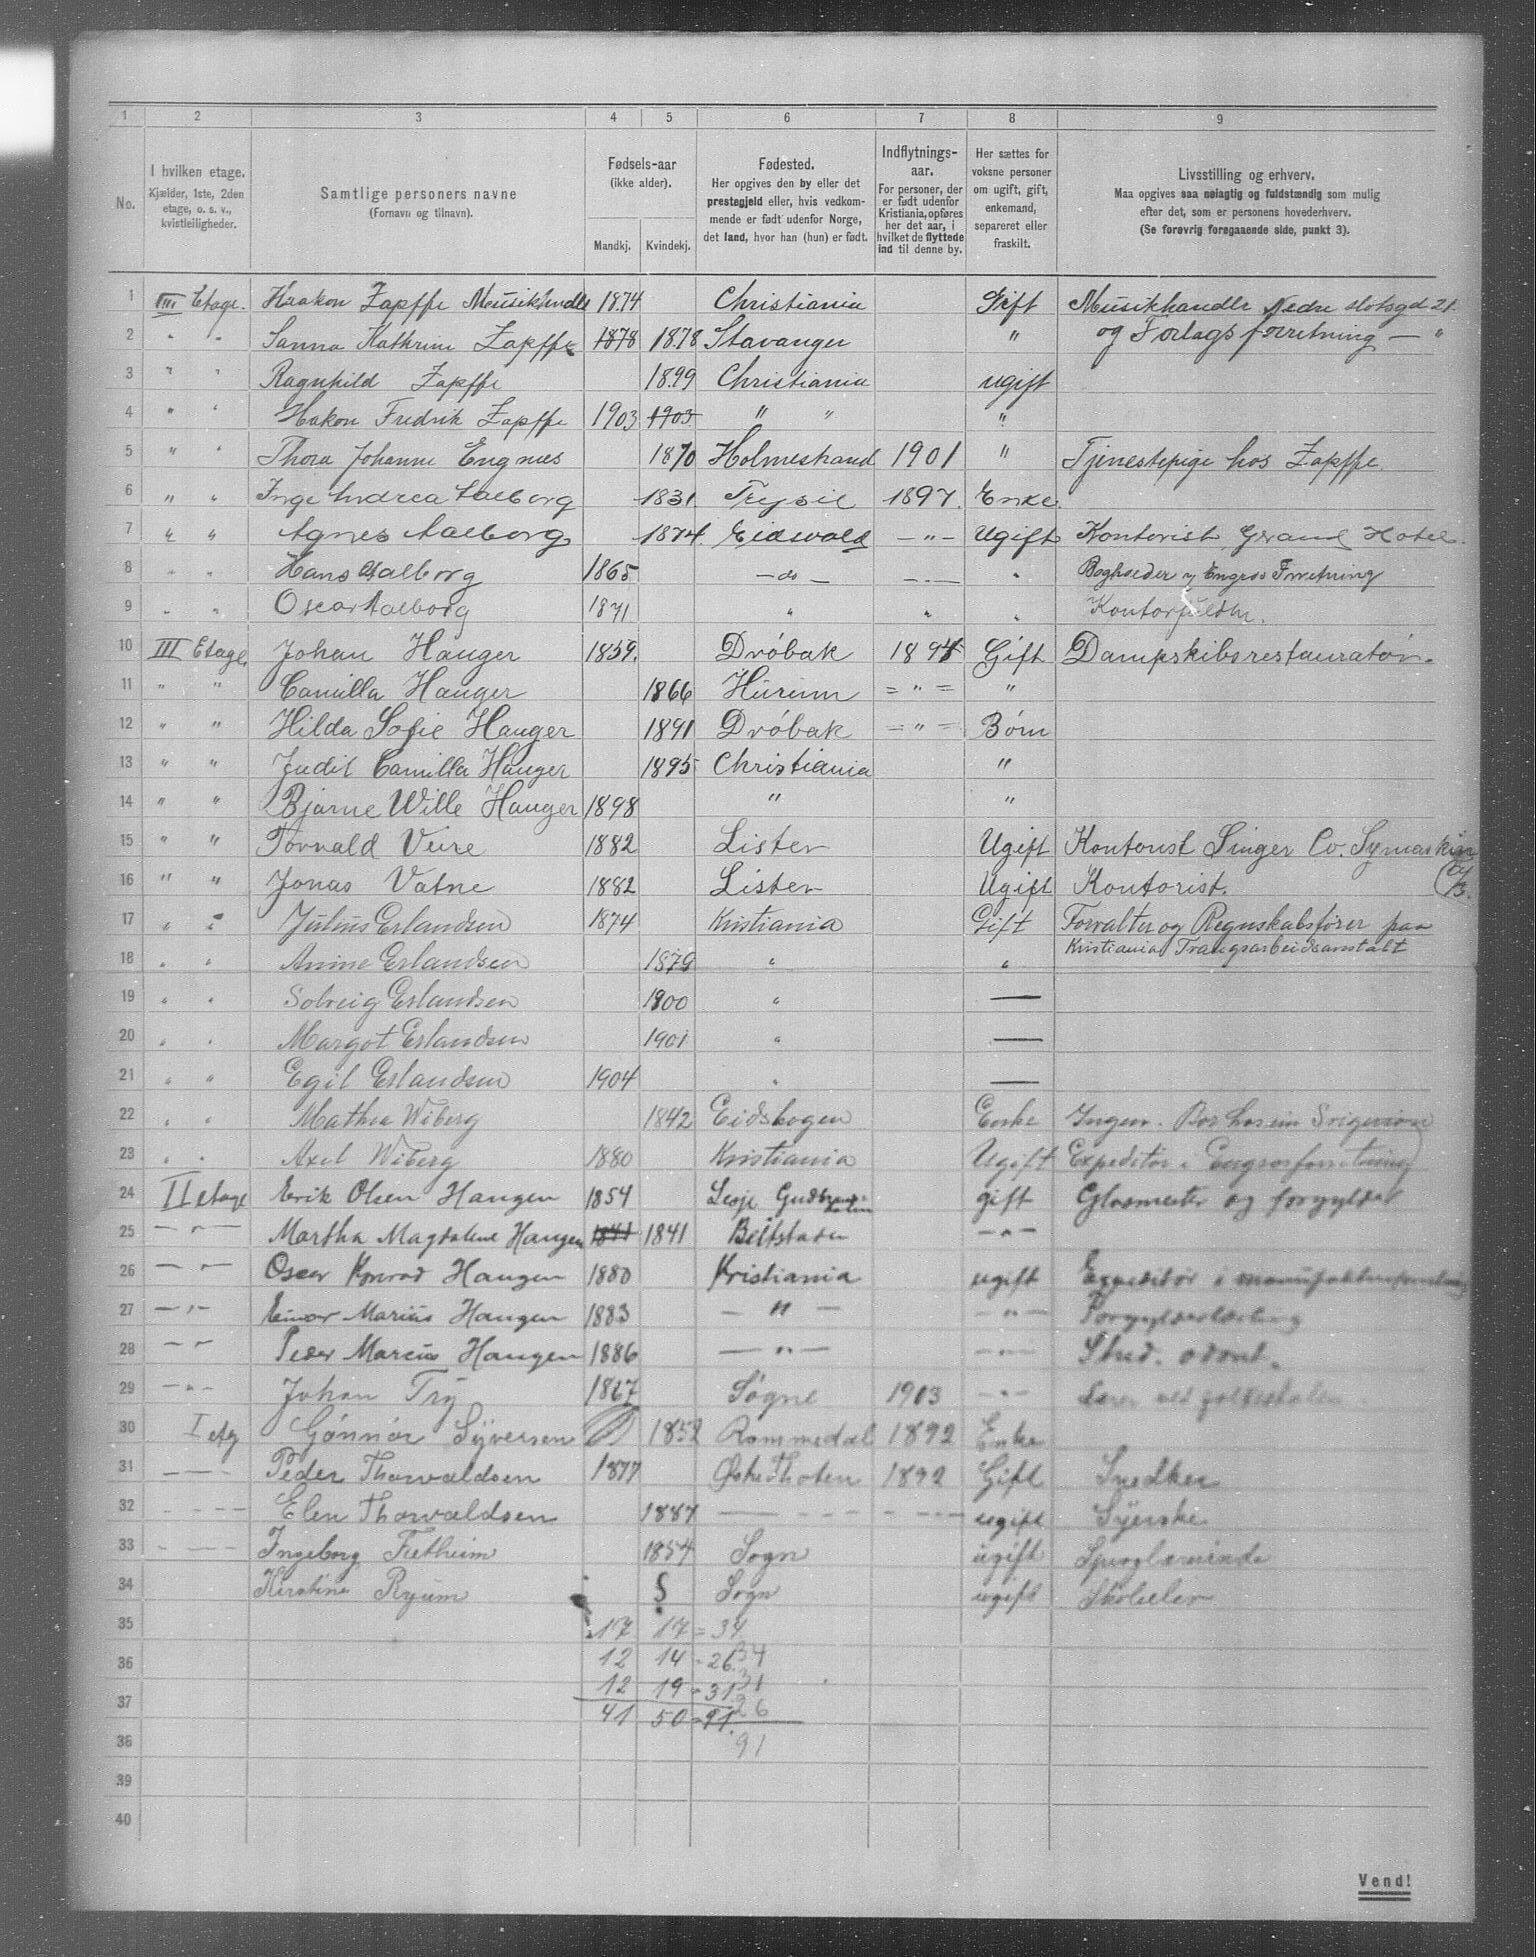 1 2 3 4 5 6 7 8 9
No.
I hvilken etage.
Kjælder, 1ste, 2den
etage, o. s. v.,
kvistleiligheder.
Samtlige personers navne
(Fornavn og tilnavn).
Fødsels-aar
(ikke alder).
Mandkj. Kvindekj.
Fødested.
Her opgives den by eller det
prestegjeld eller, hvis vedkom-
mende er født udenfor Norge,
det land, hvor han (hun) er født.
Indflytnings-
aar.
For personer, der
er født udenfor
Kristiania, opføres
her det aar, i
hvilket de flyttede
ind til denne by.
Her sættes for
voksne personer
om ugift, gift,
enkemand,
separeret eller
fraskilt.
Livsstilling og erhverv.
Maa opgives saa nøiagtig og fuldstændig som mulig
efter det, som er personens hovederhverv.
(Se forøvrig foregaaende side, punkt 3).
1 III Etage. Haakon Zapffe Musikhandle 1874 Christiania Gift Musikhandle Nedre slotsgd 21
2 " " Sanna Kathrine Zapffe 1878 1878 Stavanger " og Forlagsforretning — "
3 " " Ragnhild Zapffe 1899 Christiania ugift
4 " " Hakon Fredrik Zapffe 1903 1903 " " "
5 " " Thora Johanne Engnæs 1870 Holmestrand 1901 " Tjenestepige hos Zapffe
6 " " Inge Andrea Aalborg 1831. Trysil 1897. Enke.
7 " " Agnes Aalborg 1874. Eidsvold — " — Ugift Kontorist Grand Hotel.
8 " " Hans Aalborg 1865 — do — — " — " Bogholder Engros Forretning
9 " " Oscar Aalborg 1871 " " "
10 III Etage. Johan Hauger 1859. Drøbak 1894 Gift Dampskibsrestauratør.
11 " " Camilla Hauger 1866 Hurum = " = "
12 " " Hilda Sofie Hauger 1891 Drøbak = " = Børn
13 " " Judit Camilla Hauger 1895 Christiania "
14 " " Bjarne Wille Hauger 1898 " "
15 " " Torvald Veire 1882 Lister Ugift Kontorist Singer Co. Symaskin
16 " " Jonas Vatne 1882 Lister Ugift Kontorist.
17 " " Julius Erlandsen 1874 Kristiania Gift Forvalter og Regnskabsfører paa
Kristiania Tvangsarbeidsanstalt
18 " " Anine Erlandsen 1879 " "
19 " " Solveig Erlandsen 1900 " —
20 " " Margot Erlandsen 1901 " —
21 " " Egil Erlandsen 1904 " —
22 " " Mathea Wiberg 1842 Eidskogen Enke Ingen. Bor hos sin
23 " " Axel Wiberg 1880 Kristiania Ugift Expeditør i Engrosforretning
24 II etage Erik Olsen Haugen 1854 Lesje gift Glasmester og forgylder
25 — " — Martha Magdalene Haugen 1841 1841 Beitstaden — " —
26 — " — Oscar Konrad Haugen 1880 Kristiania ugift Expeditør i manufakturforretning
27 — " — Einar Marius Haugen 1883 — " — — " — Forgylderlærling
28 — " — Peder Marcus Haugen 1886 — " — — " — Stud. odont.
29 — " — Johan Try 1867 Søgne 1903 — " — Lærer ved folkeskolen
30 I etg Gunnor Syversen 1852 Rommedal 1892 Enke
31 — — — Peder Thorvaldsen 1877 Østre Thoten 1892 Gift Snedker
32 — — — Elen Thorvaldsen 1887 — — — — — — ugift Syerske
33 — — — Ingeborg Fretheim 1854 Sogn ugift
34 Kirstine Ryum Sogn ugift
35 17 17 = 34
36 12 14 - 26 34
12 19 = 31 31
37 41 50 = 91. 26
38 91
39
40
Vend!